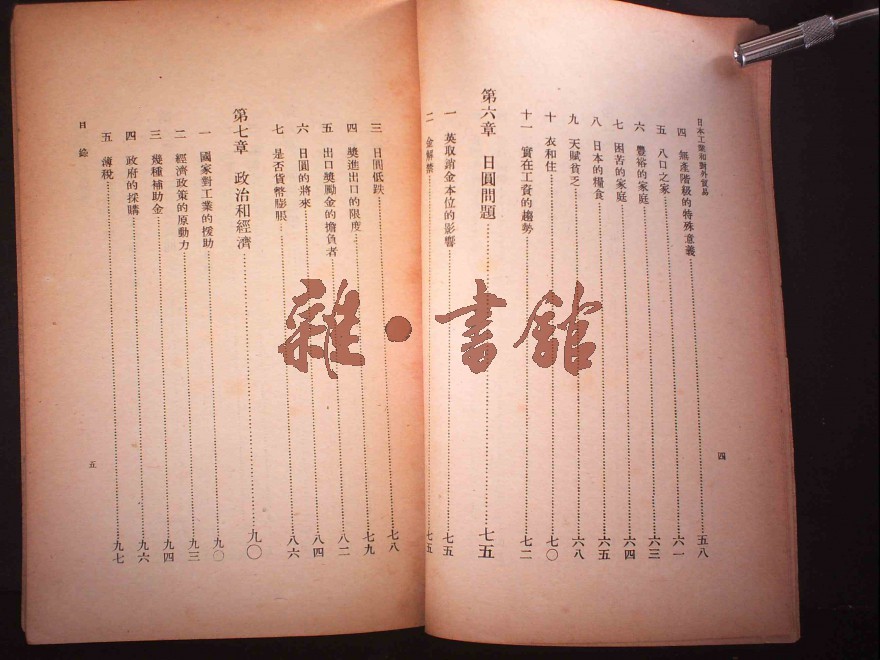 日本工業和對外貿易
四 無產階級的特殊意義……五八
五 八口之家……六一
六 豐裕的家庭……六三
七 困苦的家庭……六四
八 日本的糧食……六五
九 天賦貧乏……六八
十 衣和住……七〇
十一 實在工資的趨勢……七二
第六章 日圓問題……七五
一 英取消金本位的影響……七五
二 金解禁……七五
四
三 日圓低跌……七八
四 獎進出口的限度……七九
五 出口獎勵金的擔負者……八二
六 日圓的將來……八四
七 是否貨幣膨脹……八六
第七章 政治和經濟……九〇
一 國家對工業的援助……九〇
二 經濟政策的原動力……九三
三 幾種補助金……九四
四 政府的採購……九六
五 薄稅……九七
目錄
五
雜•書館